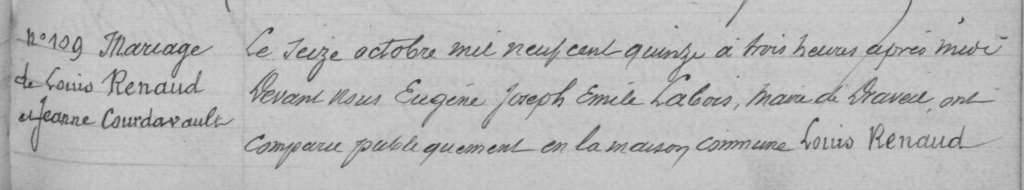 N° 109 Mariage
de Louis Renaud
et Jeanne Courdavault
Le seize octobre mil neuf cent quinze à trois heures après midi
Devant nous Eugène Joseph Emile Labois, maire de Draveil, ont
comparu publiquement en la maison commune Louis Renaud